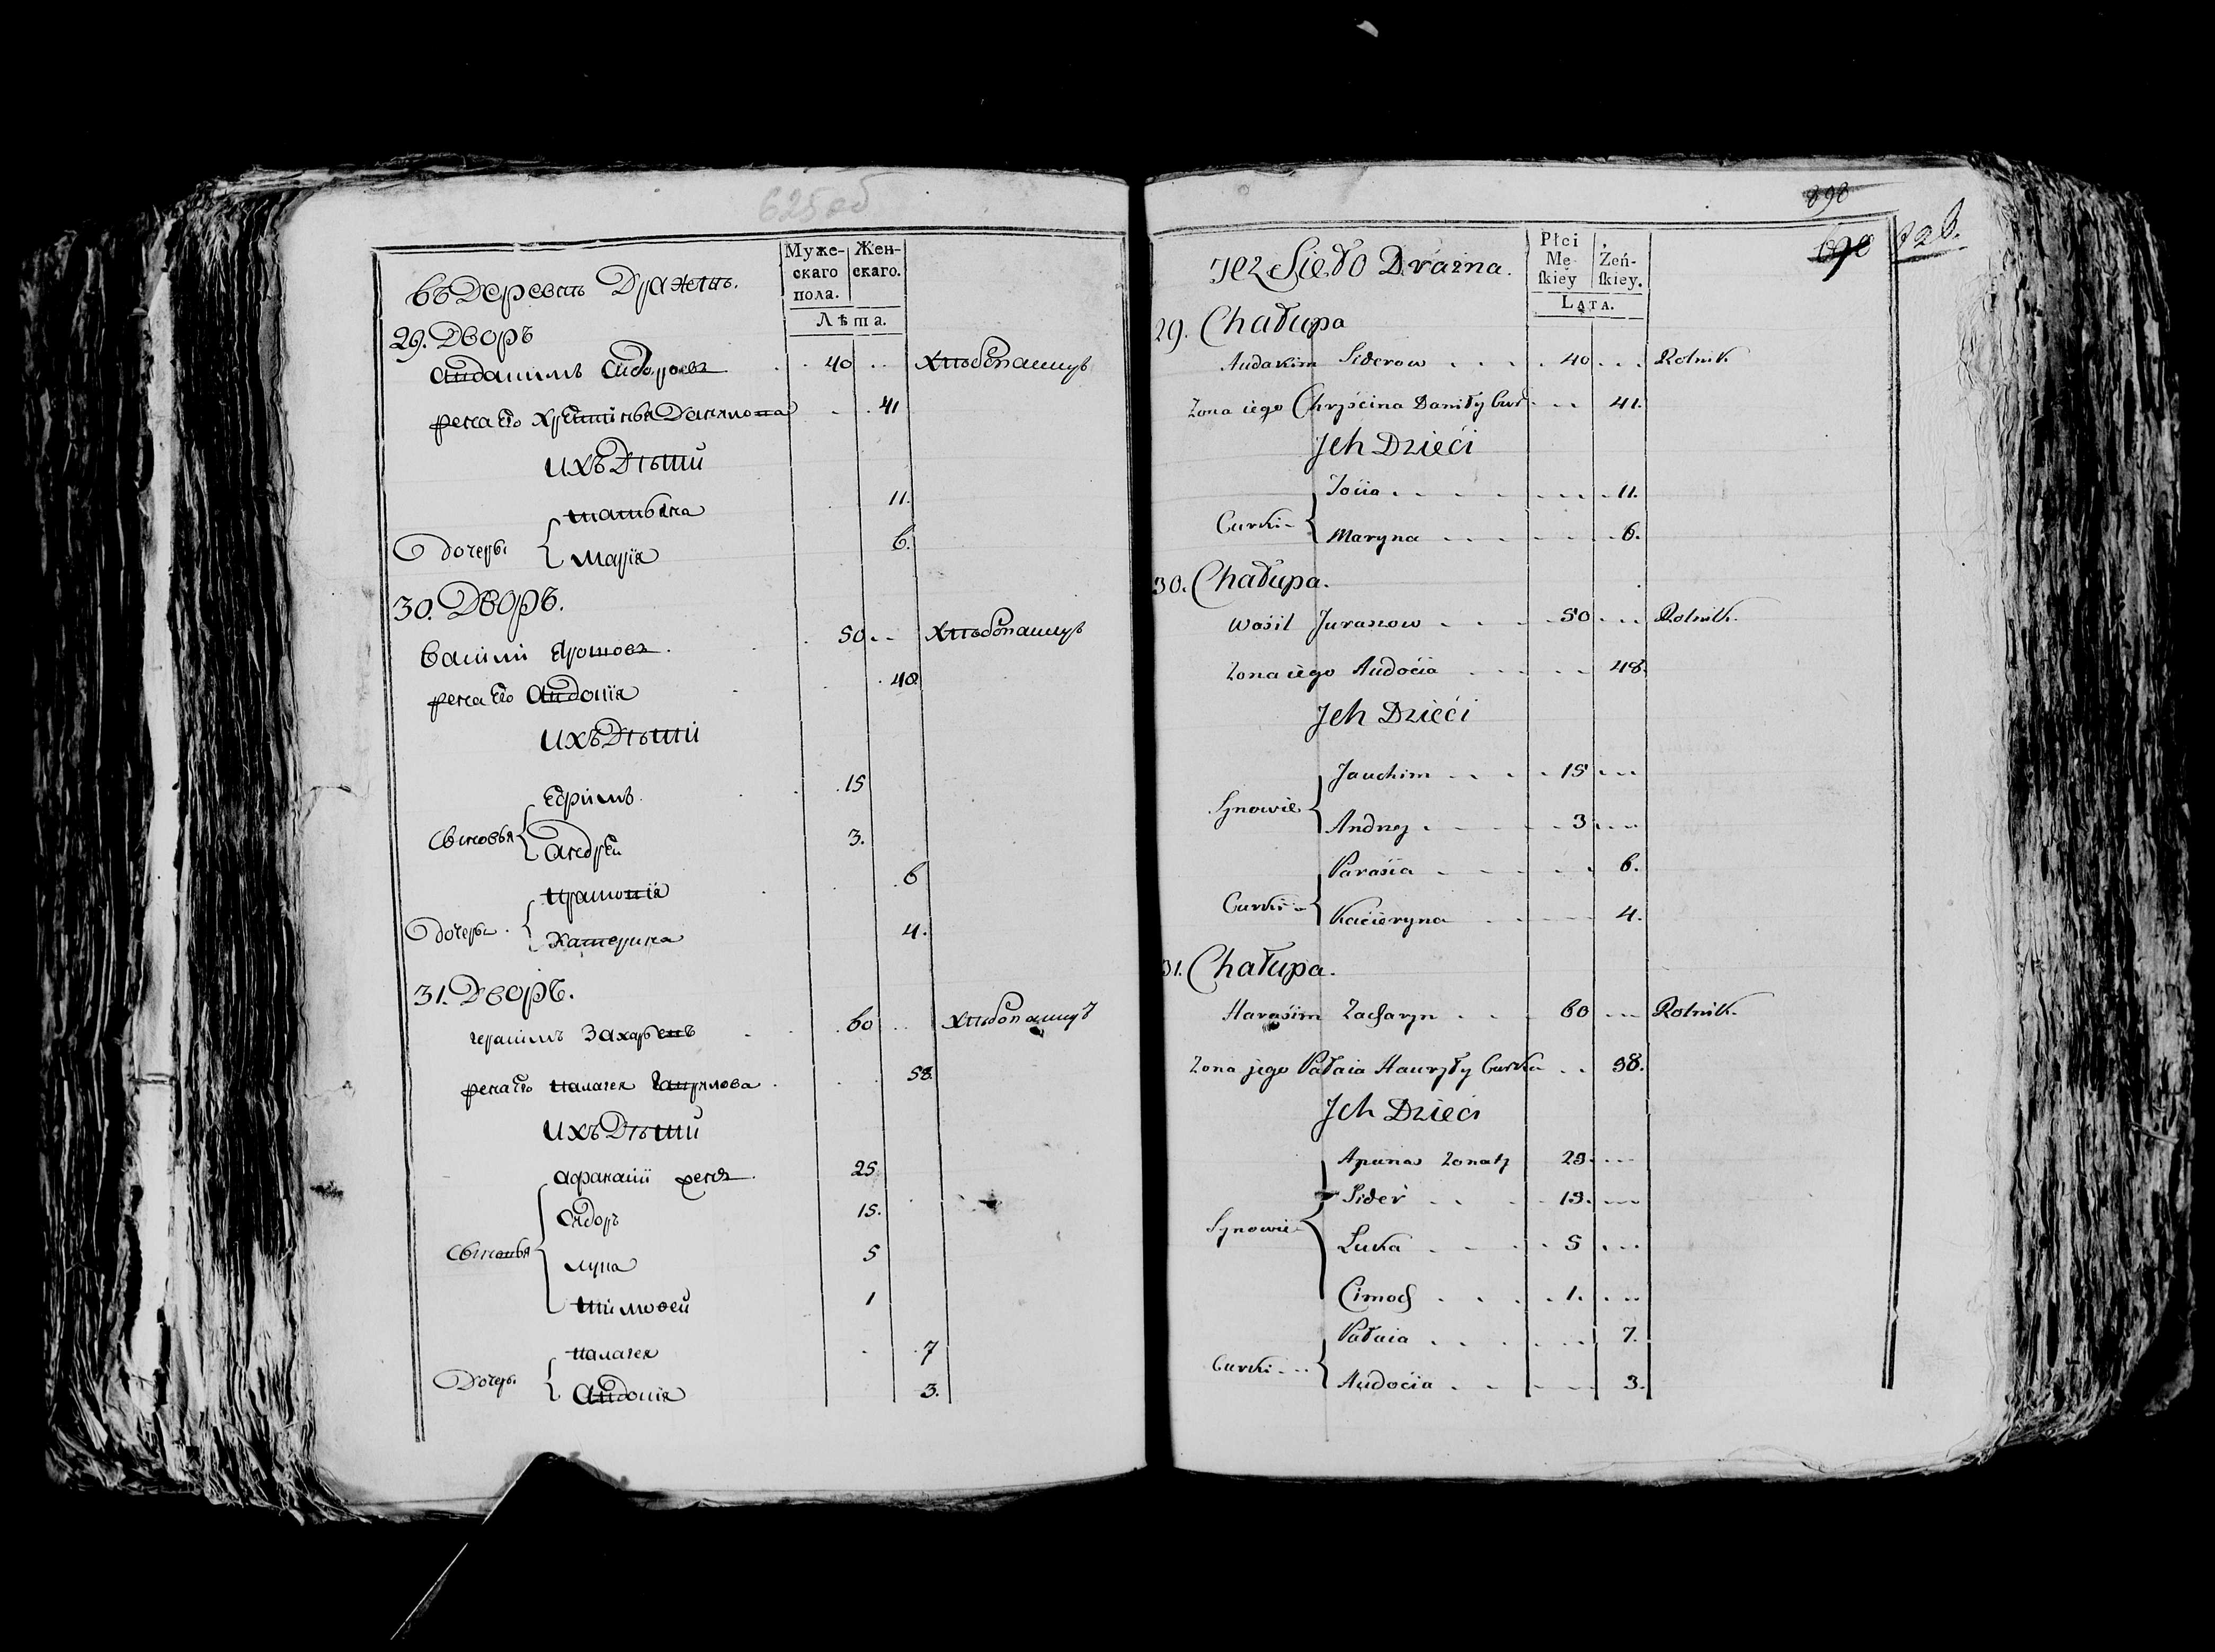 625 об
въ деревнѣ Дражнѣ.
Муже-
скаго
пола.
Жен-
скаго.
Лѣта.
29. Дворъ
Авдакимъ Сидоровъ 40 Хлѣбопашцъ
жена его Христинья Данилова 41
ихъ дѣти
Дочери
татьяна 11.
Марія 6.
30. Дворъ.
Василий 50 Хлѣбопашцъ
жена его Авдотія
ихъ дѣти
Сыновья
Ефримъ 15
Андрей 3.
Дочери
6
Катерина 4.
31. Дворъ.
герасимъ Захарьевъ 60 Хлѣбопашцъ
жена его палагея Гаврилова 58.
ихъ дѣти
Сыновья
Афанасий женатъ 25.
Сидоръ 15.
лука 5
тимофей 1
Дочери
палагея 7
Авдотія 3.
890
Jez Sieło Drażna.
Płci
Mę-
ſkiey
Żeń-
ſkiey.
Lata.
29. Chałupa
Audakim Siderow 40 Rolnik
Żona iego Chryścina Daniły Cur 41.
Jch Dzieći
Curki
Zośia 11.
Maryna 6.
30. Chałupa.
Waśil 50 Rolnik.
Żona iego Audocia 48.
Jch Dzieći
Synowie
Jauchim 15
Andrzey 3
Curki
Paraśia 6.
Kacieryna 4.
31. Chałupa.
Haraśim Zacharyn 60 Rolnik.
Żona jego Pałaia Hauryły Curka 58.
Jch Dzieći
Synowie
Apanas Żonaty 25.
Sider 15.
Łuka 5
Cimoch 1.
Curki
Pałaia 7.
Audocia 3.